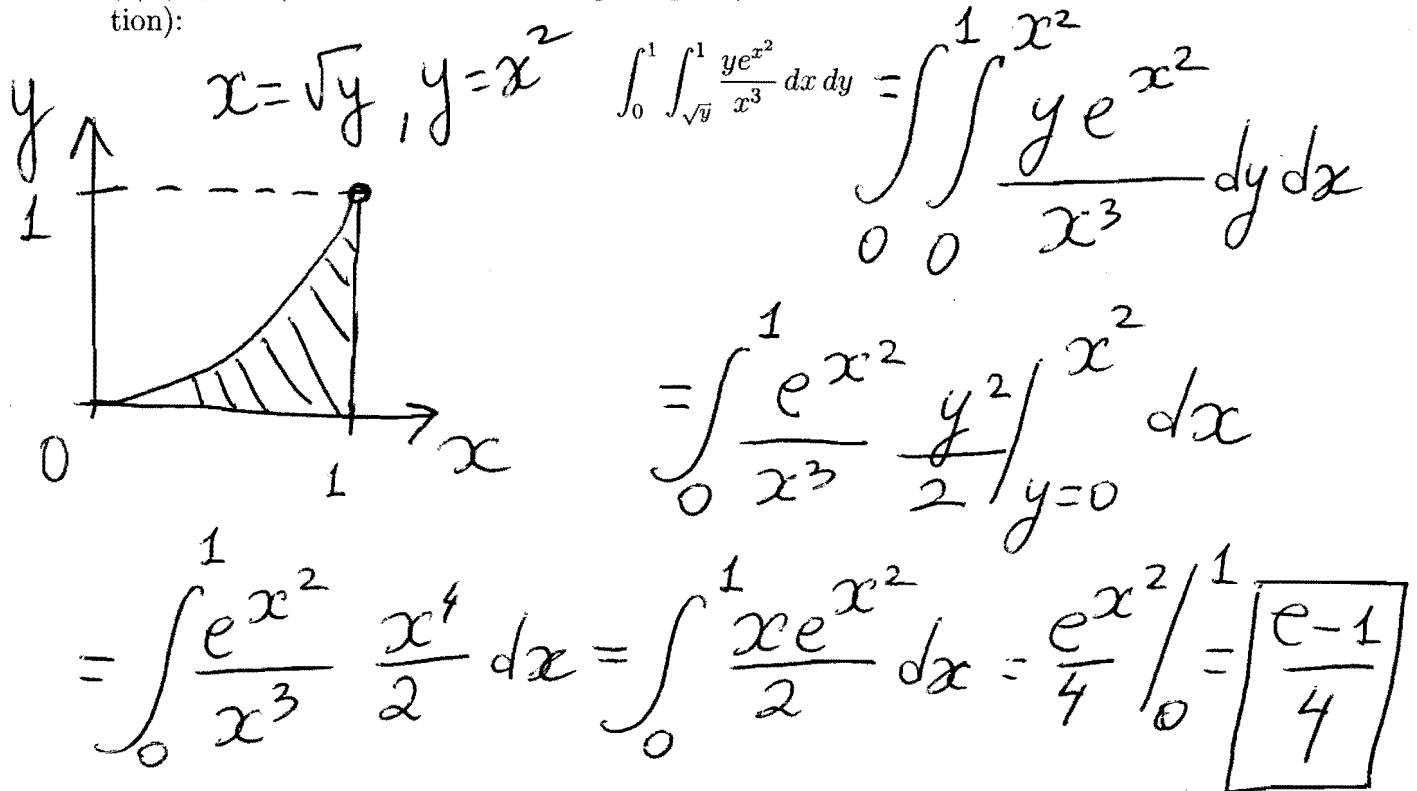 tion):
x = √y , y = x²
∫₀¹ ∫_{√y}^1 ye^{x²}/x³ dx dy = ∫₀¹ ∫₀^{x²} ye^{x²}/x³ dy dx
y
1
0
1
x
= ∫₀¹ e^{x²}/x³ y²/2 |_{y=0}^{x²} dx
= ∫₀¹ e^{x²}/x³ x⁴/2 dx = ∫₀¹ xe^{x²}/2 dx = e^{x²}/4 |₀¹ = e-1/4